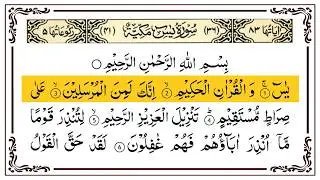 اٰیَاتُهَا ٨٣ (٣٦) سُوْرَةُ یٰسٓ مَكِّیَّةٌ (٤١) رُكُوْعَاتُهَا ٥
بِسْمِ اللّٰهِ الرَّحْمٰنِ الرَّحِیْمِ
یٰسٓ ۚ﴿١﴾ وَ الْقُرْاٰنِ الْحَكِیْمِ ۙ﴿٢﴾ اِنَّكَ لَمِنَ الْمُرْسَلِیْنَ ۙ﴿٣﴾ عَلٰی
صِرَاطٍ مُّسْتَقِیْمٍ ؕ﴿٤﴾ تَنْزِیْلَ الْعَزِیْزِ الرَّحِیْمِ ۙ﴿٥﴾ لِتُنْذِرَ قَوْمًا
مَّاۤ اُنْذِرَ اٰبَآؤُهُمْ فَهُمْ غٰفِلُوْنَ ﴿٦﴾ لَقَدْ حَقَّ الْقَوْلُ